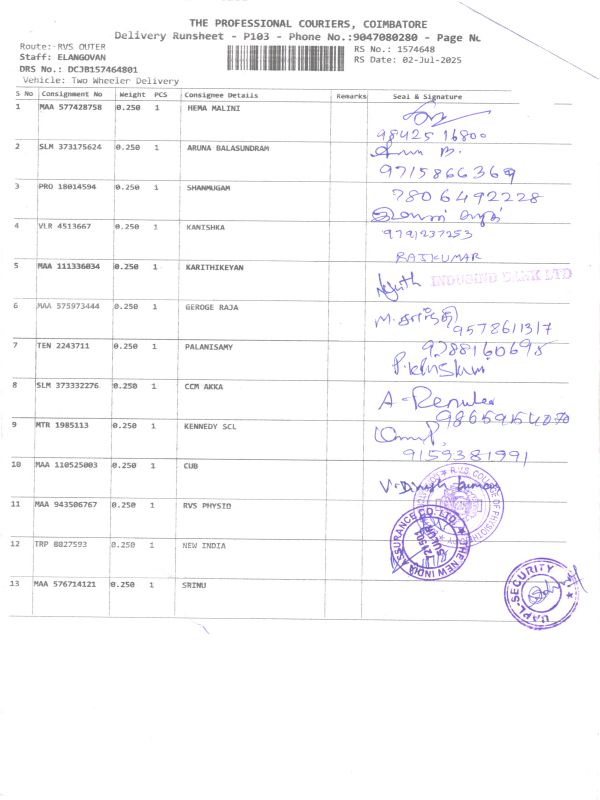 THE PROFESSIONAL COURIERS, COIMBATORE
Delivery Runsheet - P103 - Phone No.:9047080280 - Page
Route: RVS OUTER
RS No.: 1574648
Staff: ELANGOVAN
RS Date: 02-Jul-2025
DRS No.: DCJB157464801
Vehicle: Two Wheeler Delivery
S No Consignment No Weight PCS Consignee Details Remarks Seal & Signature
1 MAA 577428758 0.250 1 HEMA MALINI
98425 16800
2 SLM 373175624 0.250 1 ARUNA BALASUNDRAM
B.
9715866369
3 PRO 18014594 0.250 1 SHANMUGAM
7806492228
4 VLR 4513667 0.250 1 KANISHKA
9791237253
RAJKUMAR
5 MAA 111336034 0.250 1 KARITHIKEYAN
INDUSIND BANK LTD
6 MAA 575973444 0.250 1 GEROGE RAJA
9578611317
7 TEN 2243711 0.250 1 PALANISAMY
9788160695
8 SLM 373332276 0.250 1 CCM AKKA
A - Renuka
9 MTR 1985113 0.250 1 KENNEDY SCL
9159381991
10 MAA 110525003 0.250 1 CUB
V. Dinesh kumar
11 MAA 943506767 0.250 1 RVS PHYSIO
R.V.S. COLLEGE OF PHYSIOTHERAPY
12 TRP 8827593 0.250 1 NEW INDIA
THE NEW INDIA ASSURANCE CO. LTD.
SULUR
13 MAA 576714121 0.250 1 SRINU
UAPL-SECURITY